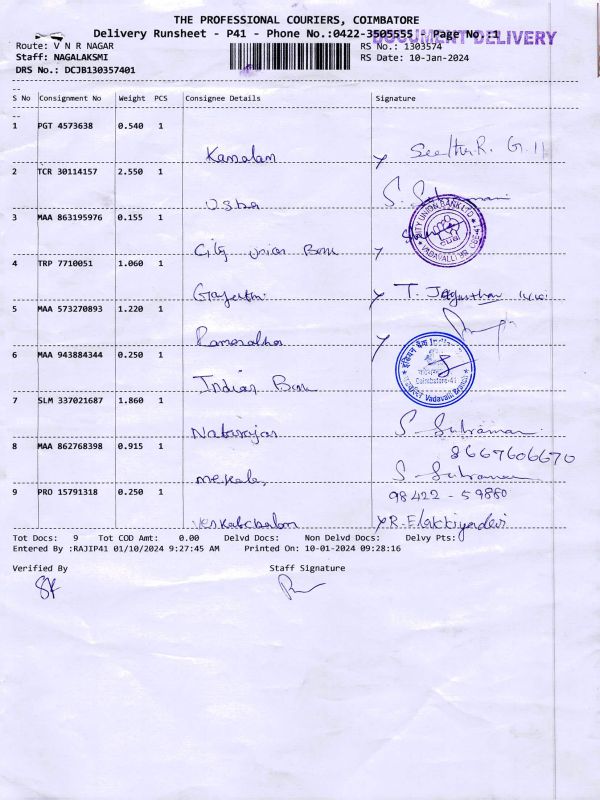 THE PROFESSIONAL COURIERS, COIMBATORE
Delivery Runsheet - P41 - Phone No.:0422-3505555 - Page No.:1
DOCUMENT DELIVERY
Route: V N R NAGAR
RS No.: 1303574
Staff: NAGALAKSMI
RS Date: 10-Jan-2024
DRS No.: DCJB130357401
S No Consignment No Weight PCS Consignee Details Signature
1 PGT 4573638 0.540 1
Kamalam
2 TCR 30114157 2.550 1
Usha
3 MAA 863195976 0.155 1
City union Bank
CITY UNION BANK LTD
CUB
VADAVALLI
4 TRP 7710051 1.060 1
Gayathri
T.
5 MAA 573270893 1.220 1
6 MAA 943884344 0.250 1
Indian Bank
इंडियन बैंक Indian
Coimbatore-41
Vadavalli Branch
7 SLM 337021687 1.860 1
Natarajan
S.
8667606670
8 MAA 862768398 0.915 1
Mekala
S.
98422 - 59880
9 PRO 15791318 0.250 1
Venkatachalam
R. Elakkiyadevi
Tot Docs: 9 Tot COD Amt: 0.00 Delvd Docs: Non Delvd Docs: Delvy Pts:
Entered By :RAJIP41 01/10/2024 9:27:45 AM Printed On: 10-01-2024 09:28:16
Verified By Staff Signature